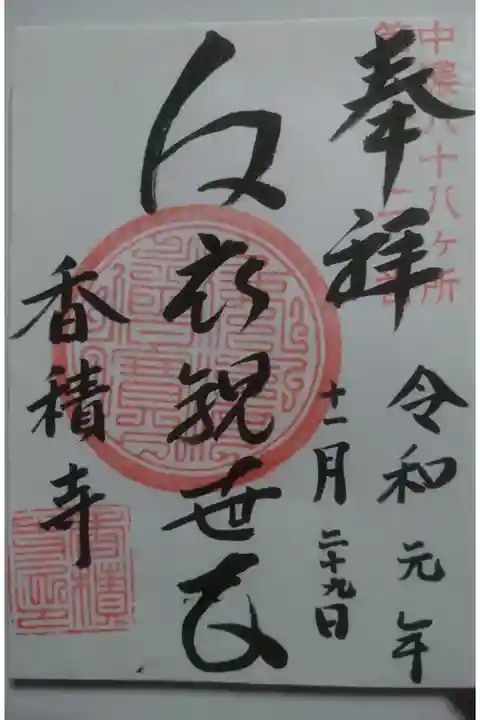 奉拝
中濃八十八ヶ所
令和元年
十一月二十九日
白衣観世音
香積寺